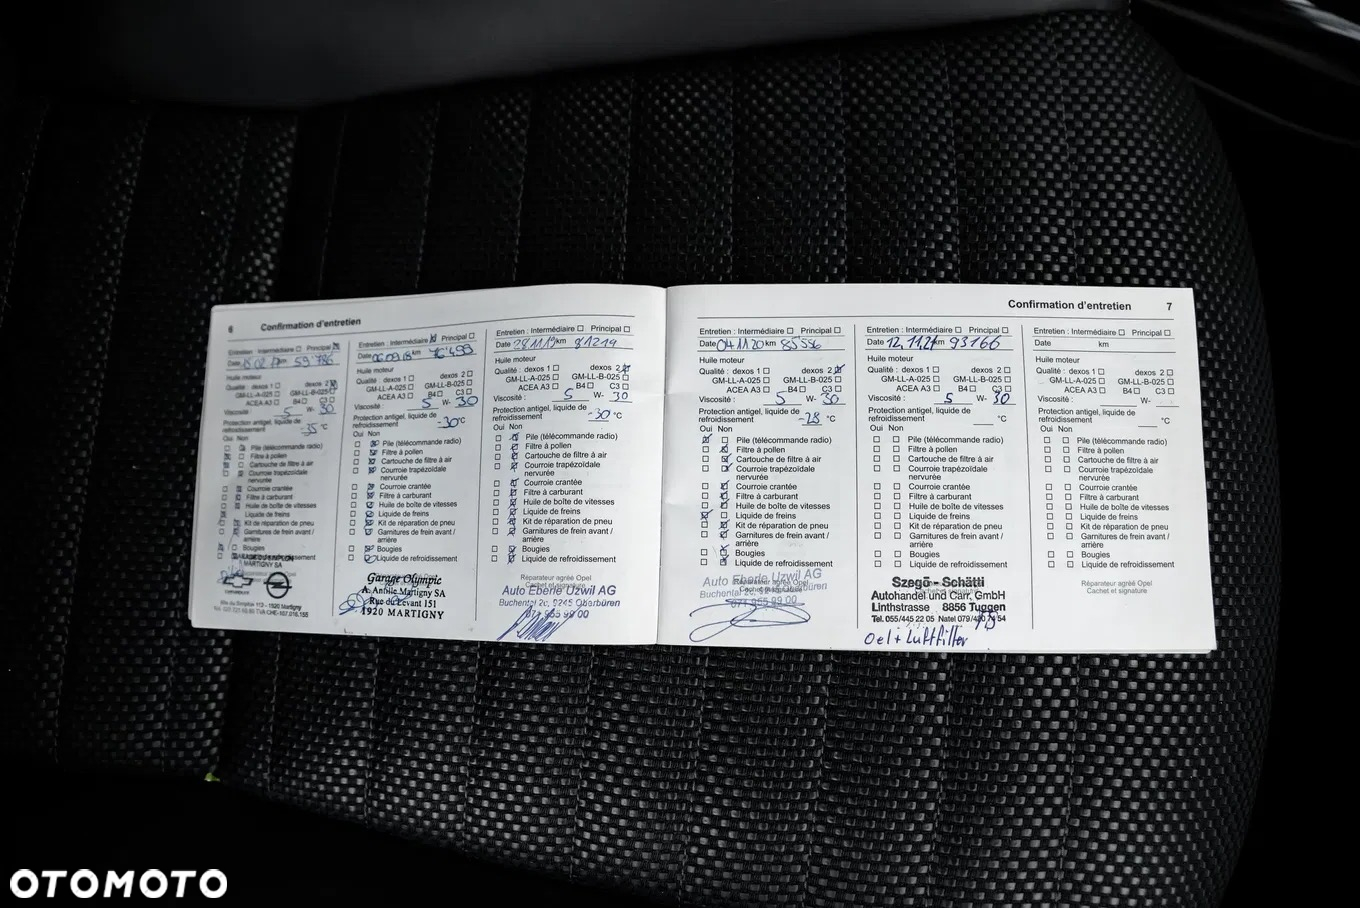 6 Confirmation d'entretien
Entretien : Intermédiaire ☐ Principal
Date
km 59'786
Huile moteur
Qualité : dexos 1 ☐ dexos 2
GM-LL-A-025 ☐ GM-LL-B-025 ☐
ACEA A3 ☐ B4 ☐ C3 ☐
Viscosité : 5 W- 30
Protection antigel, liquide de
refroidissement -35 °C
Oui Non
Pile (télécommande radio)
Filtre à pollen
Cartouche de filtre à air
Courroie trapézoïdale
nervurée
Courroie crantée
Filtre à carburant
Huile de boîte de vitesses
Liquide de freins
Kit de réparation de pneu
Garnitures de frein avant /
arrière
Bougies
MARTIGNY SA
Rue du Simplon 112 - 1920 Martigny
Entretien : Intermédiaire Principal ☐
Date 06.09.18 km 76'493
Huile moteur
Qualité : dexos 1 ☐ dexos 2 ☐
GM-LL-A-025 ☐ GM-LL-B-025 ☐
ACEA A3 ☐ B4 ☐ C3 ☐
Viscosité : 5 W- 30
Protection antigel, liquide de
refroidissement -30 °C
Oui Non
Pile (télécommande radio)
Filtre à pollen
Cartouche de filtre à air
Courroie trapézoïdale
nervurée
Courroie crantée
Filtre à carburant
Huile de boîte de vitesses
Liquide de freins
Kit de réparation de pneu
Garnitures de frein avant /
arrière
Bougies
Liquide de refroidissement
Garage Olympic
A. Antille Martigny SA
Rue du Levant 151
1920 MARTIGNY
Entretien : Intermédiaire ☐ Principal ☐
Date 28.11.19 km 81219
Huile moteur
Qualité : dexos 1 ☐ dexos 2
GM-LL-A-025 ☐ GM-LL-B-025 ☐
ACEA A3 ☐ B4 ☐ C3 ☐
Viscosité : 5 W- 30
Protection antigel, liquide de
refroidissement -30 °C
Oui Non
Pile (télécommande radio)
Filtre à pollen
Cartouche de filtre à air
Courroie trapézoïdale
nervurée
Courroie crantée
Filtre à carburant
Huile de boîte de vitesses
Liquide de freins
Kit de réparation de pneu
Garnitures de frein avant /
arrière
Bougies
Liquide de refroidissement
Réparateur agréé Opel
Cachet et signature
Auto Eberle Uzwil AG
Buchental 2c, 9245 Oberbüren
071 955 99 00
Confirmation d'entretien 7
Entretien : Intermédiaire ☐ Principal ☐
Date 04 11 20 km 85586
Huile moteur
Qualité : dexos 1 ☐ dexos 2
GM-LL-A-025 ☐ GM-LL-B-025 ☐
ACEA A3 ☐ B4 ☐ C3 ☐
Viscosité : 5 W- 30
Protection antigel, liquide de
refroidissement -28 °C
Oui Non
Pile (télécommande radio)
Filtre à pollen
Cartouche de filtre à air
Courroie trapézoïdale
nervurée
Courroie crantée
Filtre à carburant
Huile de boîte de vitesses
Liquide de freins
Kit de réparation de pneu
Garnitures de frein avant /
arrière
Bougies
Liquide de refroidissement
Auto Eberle Uzwil AG
Buchental 2c, 9245 Oberbüren
071 955 99 00
Entretien : Intermédiaire ☐ Principal ☐
Date 12.11.21 km 93166
Huile moteur
Qualité : dexos 1 ☐ dexos 2 ☐
GM-LL-A-025 ☐ GM-LL-B-025 ☐
ACEA A3 ☐ B4 ☐ C3 ☐
Viscosité : 5 W- 30
Protection antigel, liquide de
refroidissement ___ °C
Oui Non
☐ ☐ Pile (télécommande radio)
☐ ☐ Filtre à pollen
☐ ☐ Cartouche de filtre à air
☐ ☐ Courroie trapézoïdale
nervurée
☐ ☐ Courroie crantée
☐ ☐ Filtre à carburant
☐ ☐ Huile de boîte de vitesses
☐ ☐ Liquide de freins
☐ ☐ Kit de réparation de pneu
☐ ☐ Garnitures de frein avant /
arrière
☐ ☐ Bougies
☐ ☐ Liquide de refroidissement
Szegö - Schätti
Autohandel und Carr. GmbH
Linthstrasse 8856 Tuggen
Tel. 055/445 22 05 Natel 079/420 74 54
Oel + Luftfilter
Entretien : Intermédiaire ☐ Principal ☐
Date km
Huile moteur
Qualité : dexos 1 ☐ dexos 2 ☐
GM-LL-A-025 ☐ GM-LL-B-025 ☐
ACEA A3 ☐ B4 ☐ C3 ☐
Viscosité : ___ W- ___
Protection antigel, liquide de
refroidissement ___ °C
Oui Non
☐ ☐ Pile (télécommande radio)
☐ ☐ Filtre à pollen
☐ ☐ Cartouche de filtre à air
☐ ☐ Courroie trapézoïdale
nervurée
☐ ☐ Courroie crantée
☐ ☐ Filtre à carburant
☐ ☐ Huile de boîte de vitesses
☐ ☐ Liquide de freins
☐ ☐ Kit de réparation de pneu
☐ ☐ Garnitures de frein avant /
arrière
☐ ☐ Bougies
☐ ☐ Liquide de refroidissement
Réparateur agréé Opel
Cachet et signature
OTOMOTO